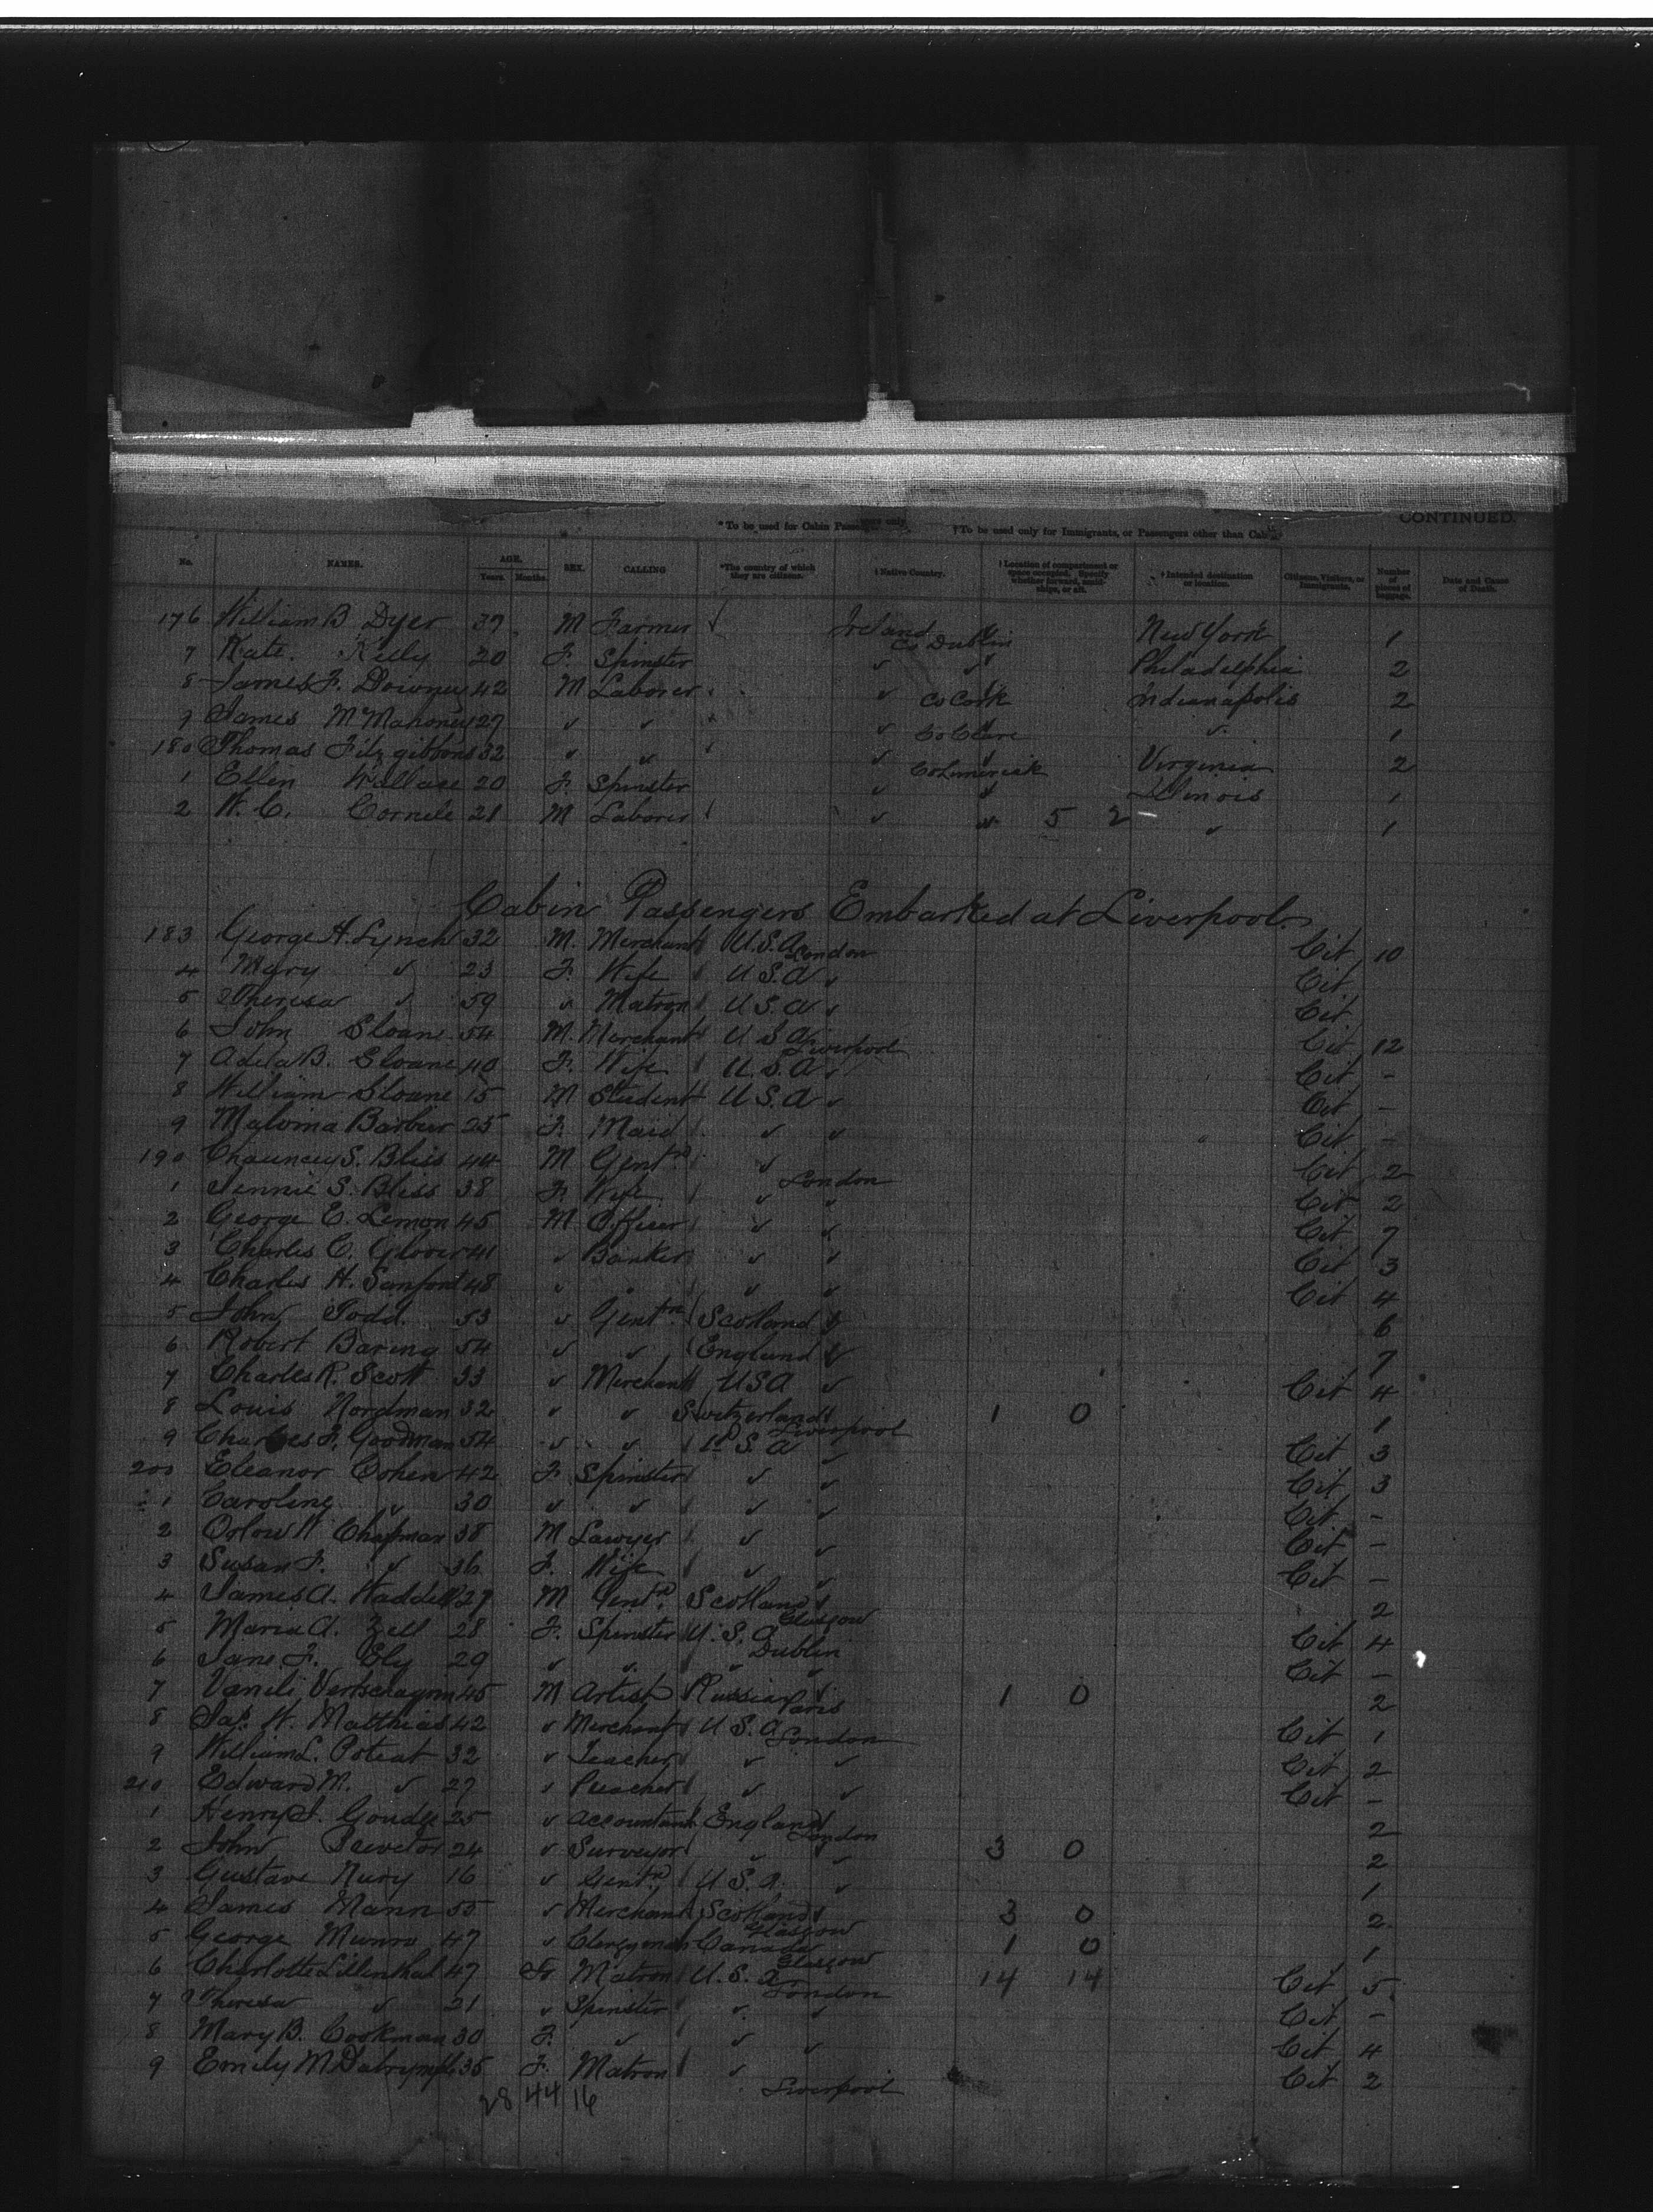 CONTINUED.
*To be used for Cabin Passengers only. †To be used only for Immigrants, or Passengers other than Cabin
No. NAMES. AGE. Years. Months. SEX. CALLING *The country of which they are citizens. † Native Country. † Location of compartment or space occupied. Specify whether forward, amidships, or aft. † Intended destination or location. Citizens, Visitors, or Immigrants. Number of pieces of baggage. Date and Cause of Death.
176 William B Dyer 37 M Farmer Ireland Co Dublin New York 1
7 Kate Kelly 20 F. Spinster ✓ ✓ Philadelphia 2
8 James F. Downey 42 M Laborer ✓ Co Cork Indianapolis 2
9 James McMahoney 27 ✓ ✓ ✓ Co Clare ✓ 1
180 Thomas Fitzgibbons 32 ✓ ✓ ✓ Co Limerick Virginia 2
1 Ellen Wallace 20 F. Spinster ✓ ✓ Illinois 1
2 W. C. 21 M Laborer ✓ ✓ 5 2 ✓ 1
Cabin Passengers Embarked at Liverpool.
183 George H. Lynch 32 M. Merchant U.S.A. London Cit 10
4 Mary ✓ 23 F. Wife U.S.A ✓ Cit
5 Theresa ✓ 59 ✓ Matron U.S.A ✓ Cit
6 John Sloane 54 M. Merchant U.S.A Liverpool Cit 12
7 Adela B. Sloane 40 F. Wife U.S.A ✓ Cit -
8 William Sloane 15 M Student U.S.A ✓ Cit -
9 Malvina Barbier 25 F. Maid ✓ ✓ Cit -
190 Chauncey S. Bliss 44 M Gentn ✓ London Cit 2
1 Jennie S. Bliss 38 F. Wife ✓ ✓ Cit 2
2 George E. Lemon 45 M Officer ✓ ✓ Cit 7
3 Charles C. Glover 41 ✓ Banker ✓ ✓ Cit 3
4 Charles H. Sanford 48 ✓ ✓ ✓ ✓ Cit 4
5 John Todd. 53 ✓ Gentm. Scotland ✓ 6
6 Robert Baring 54 ✓ ✓ England ✓ 7
7 Charles R. Scott 33 ✓ Merchant USA ✓ Cit 4
8 Louis Nordman 32 ✓ ✓ Switzerland Liverpool 1 0 1
9 Charles F. Goodman 54 ✓ ✓ U.S.A ✓ Cit 3
200 Eleanor Cohen 42 F Spinster ✓ ✓ Cit 3
1 Caroline ✓ 30 ✓ ✓ ✓ ✓ Cit -
2 Orlow W Chapman 38 M Lawyer ✓ ✓ Cit -
3 Susan F. ✓ 36 F. Wife ✓ ✓ Cit -
4 James A. Waddell 27 M Gentn. Scotland Glasgow 2
5 Maria A. Zell 28 F. Spinster U.S.A Dublin Cit 4
6 Jane F. Ely 29 ✓ ✓ ✓ ✓ Cit -
7 Vertschagin 45 M Artist Russia Paris 1 0 2
8 Jas. W. Matthias 42 ✓ Merchant U.S.A London Cit 1
9 William L. Poteat 32 ✓ Teacher ✓ ✓ Cit 2
210 Edward M. ✓ 27 ✓ Preacher ✓ ✓ Cit -
1 Henry J. 25 ✓ Accountant England London 2
2 John 24 ✓ Surveyor ✓ ✓ 3 0 2
3 Gustave Nury 16 ✓ Gentn. U.S.A. ✓ 1
4 James Mann 55 ✓ Merchant Scotland Glasgow 3 0 2
5 George Munro 47 ✓ Clergyman Canada Glasgow 1 0 1
6 Charlotte Lilienthal 47 F. Matron U.S.A London 14 14 Cit 5
7 Theresa ✓ 21 ✓ Spinster ✓ ✓ Cit -
8 Mary B. Cookman 30 F. ✓ ✓ ✓ Cit 4
9 Emily M Dalrymple 35 F. Matron ✓ Liverpool Cit 2
28 44 16